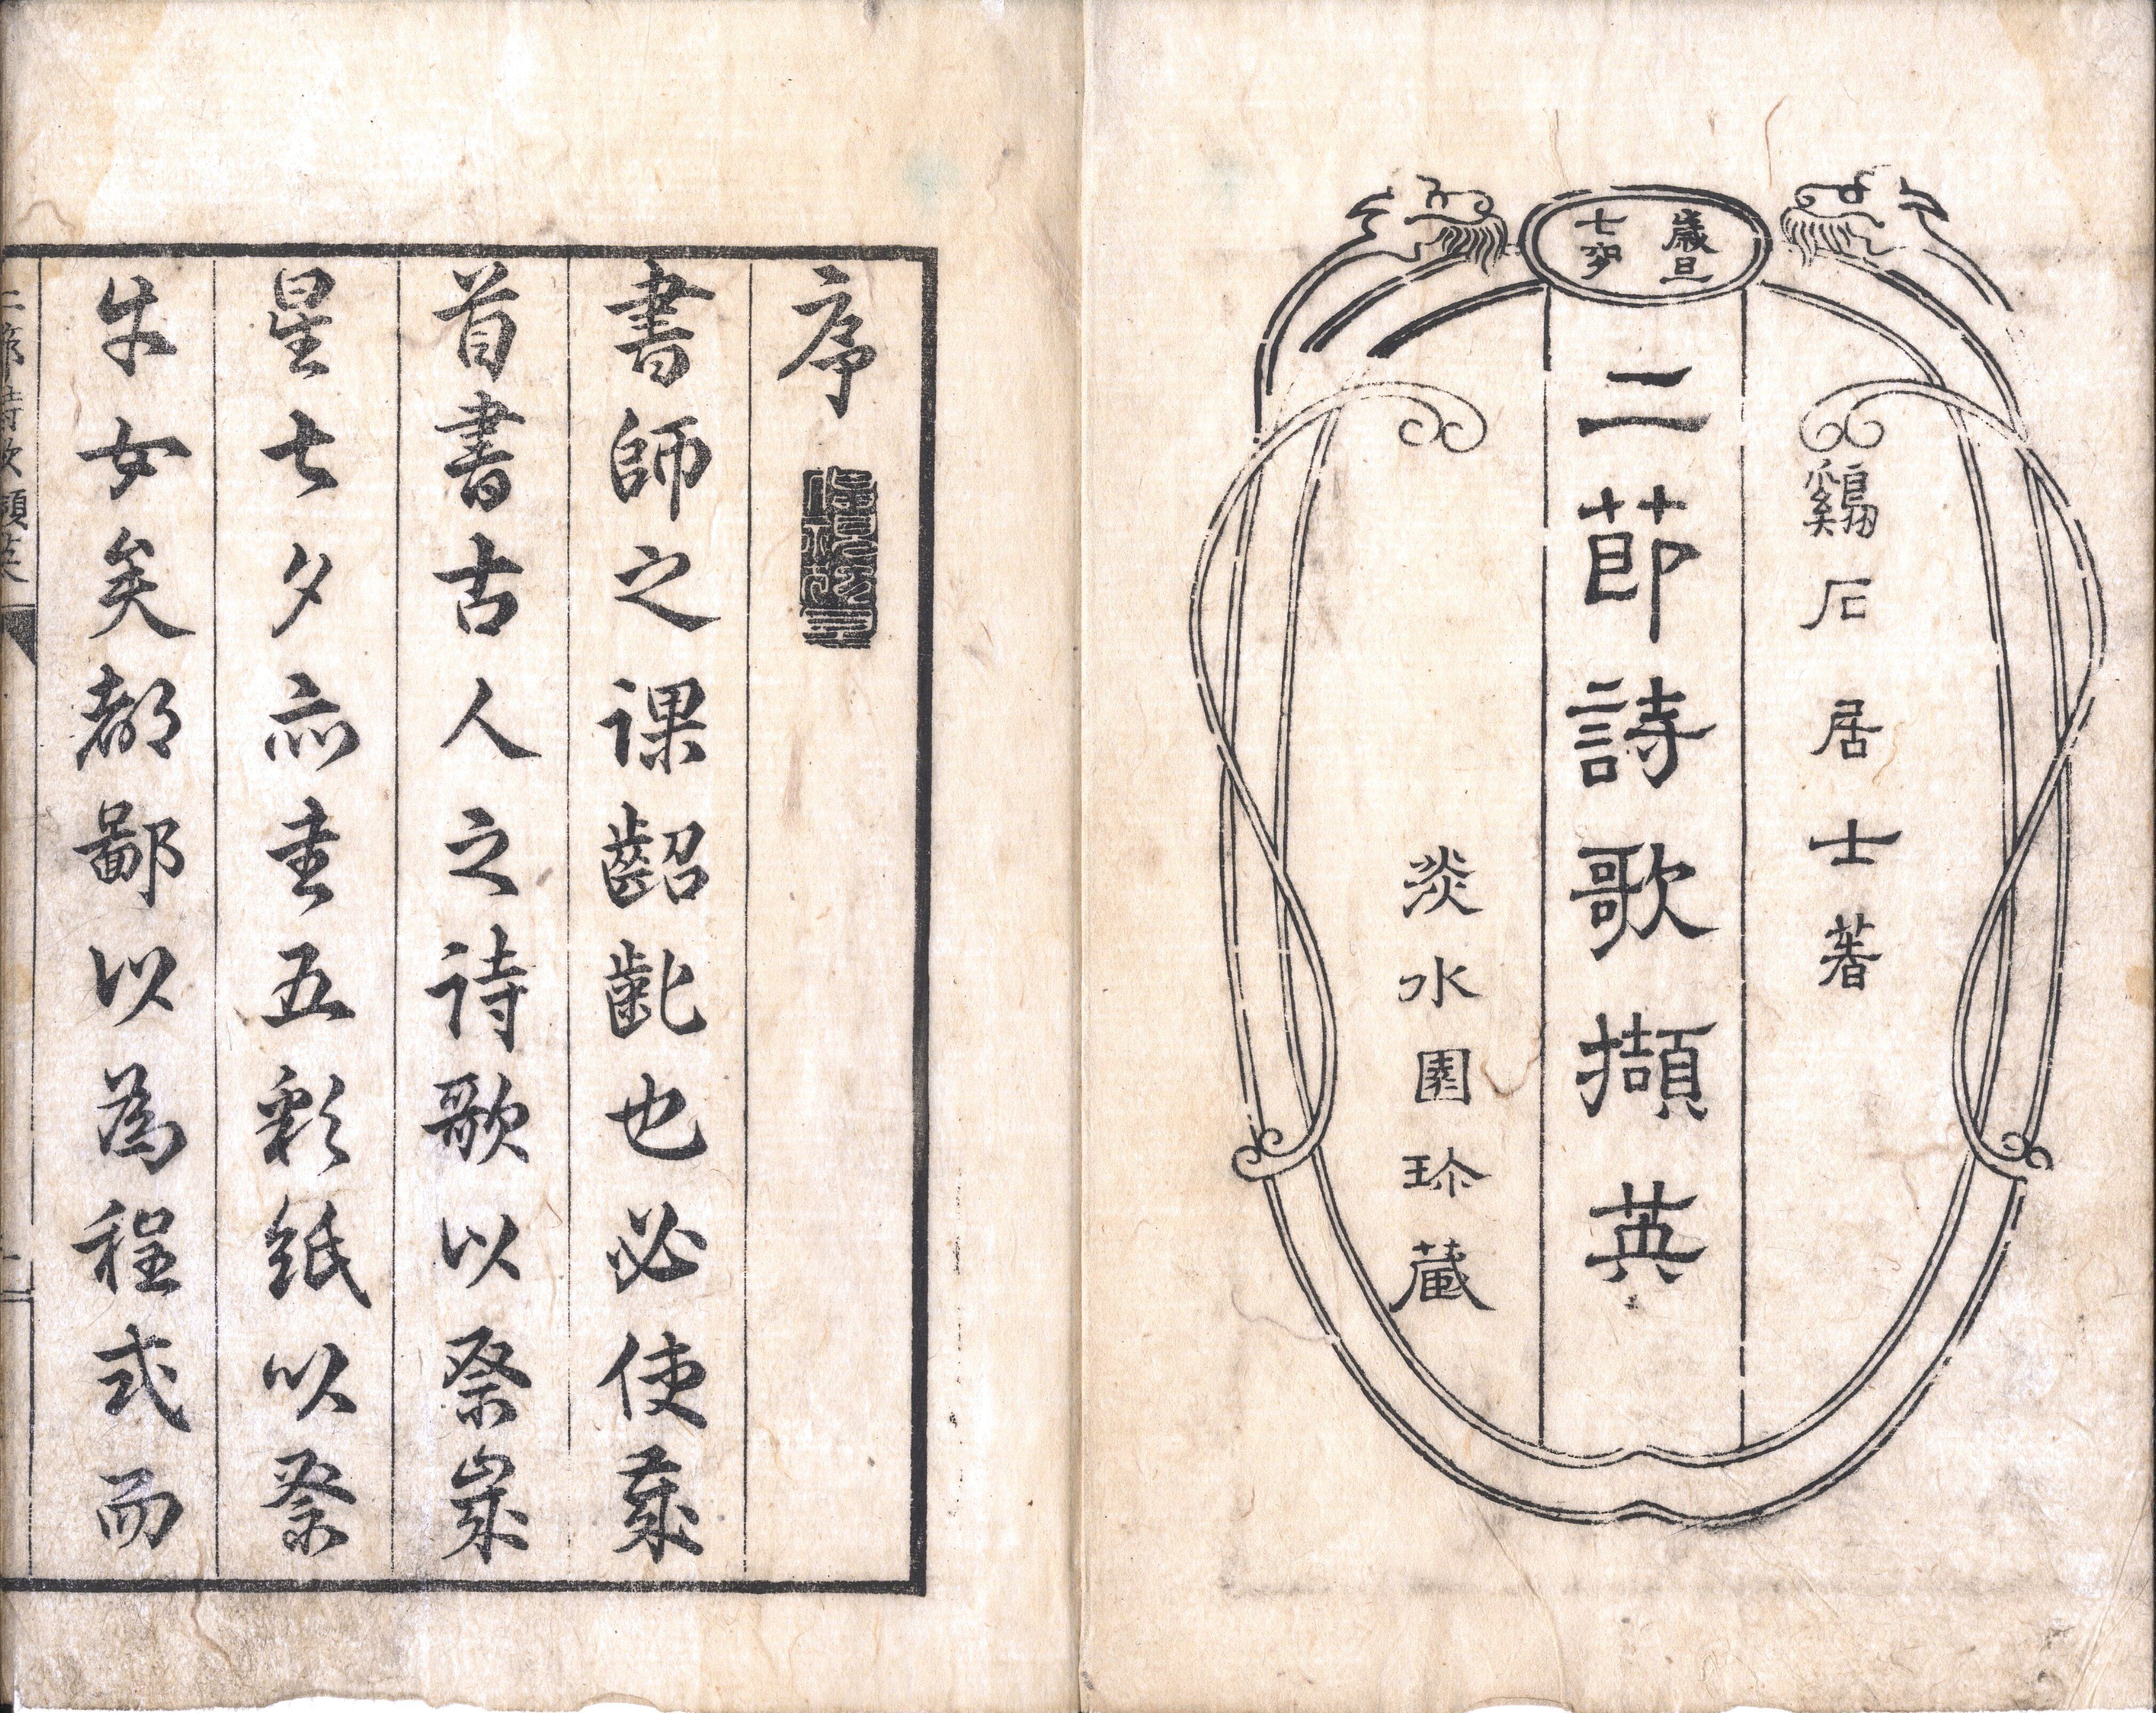 歳旦
七夕
鷄石居士著
二節詩歌擷英
淡水園珎藏
序
書師之課齠齔也必使歳
首書古人之诗歌以祭歳
星七夕亦書五彩紙以祭
牛女矣都鄙以為程式而
二節詩歌擷英